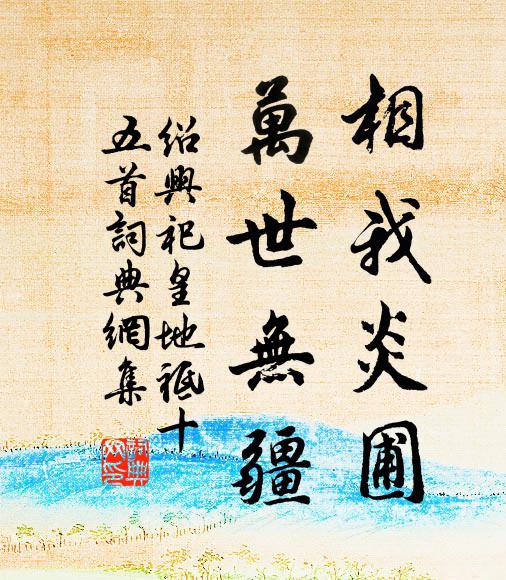 相我炎圃
萬世無疆
紹興祀皇地祇十
五首詞典網集